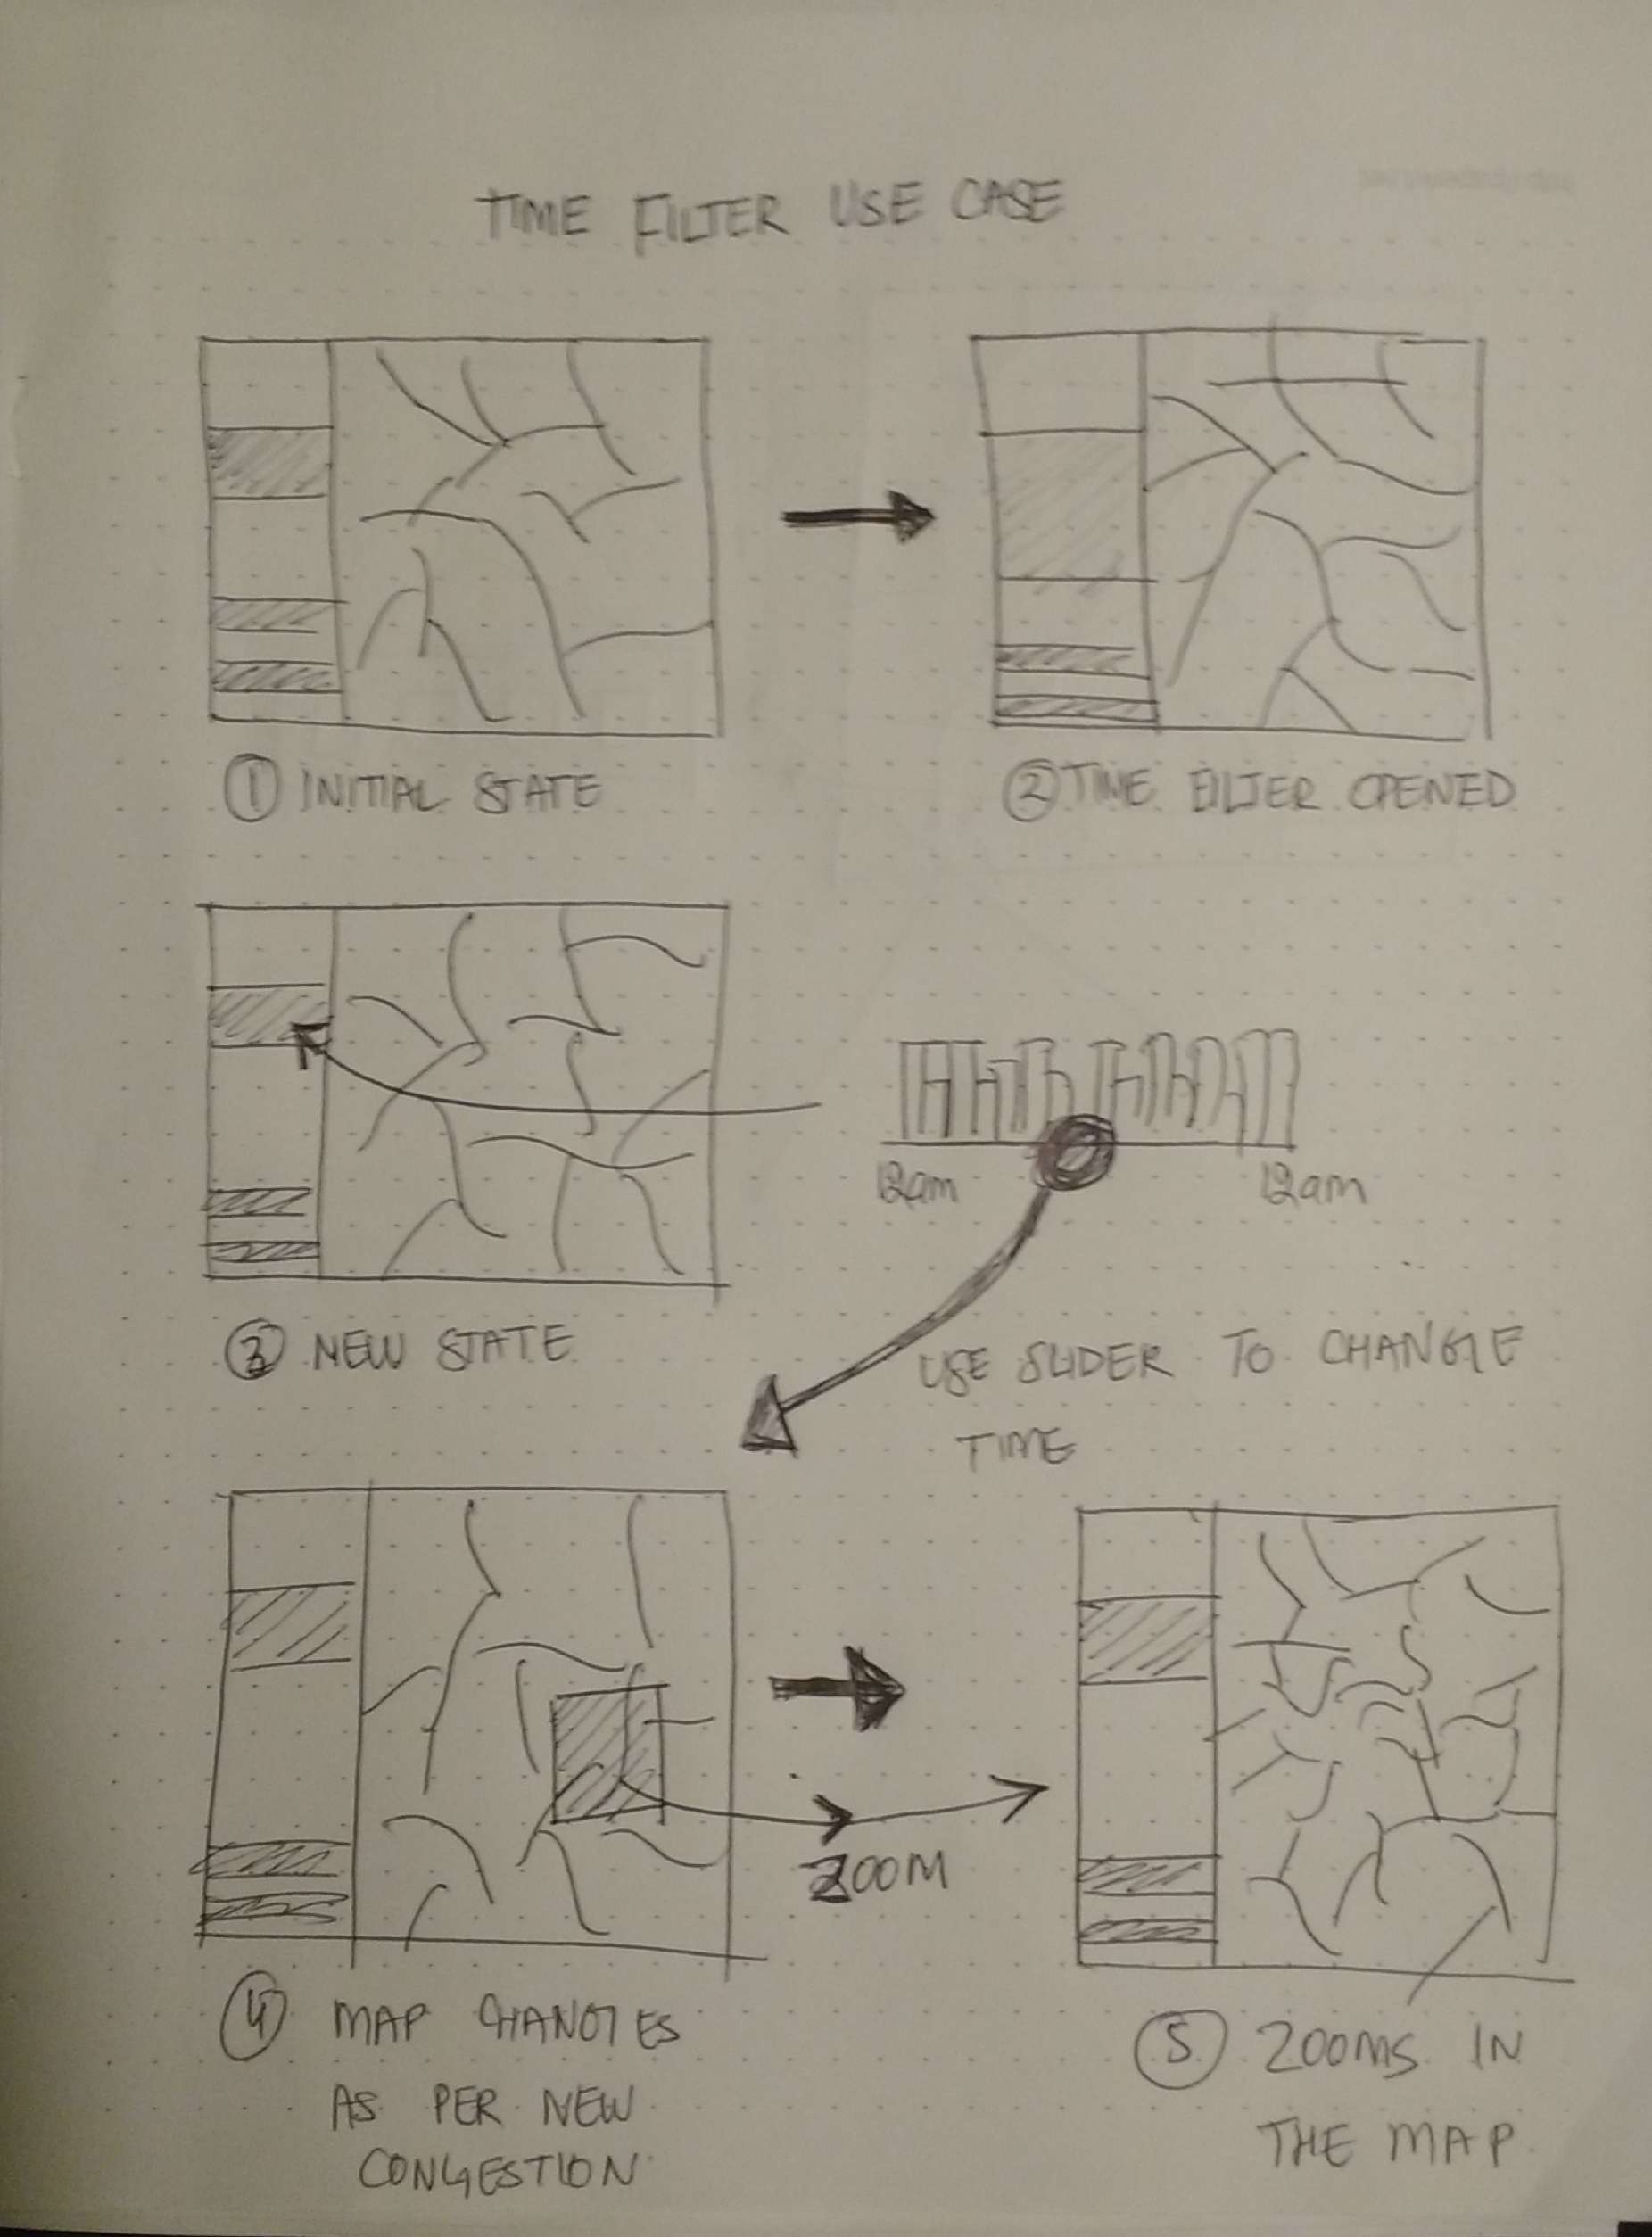 TIME FILTER USE CASE
① INITIAL STATE
② TIME FILTER OPENED
12am 12am
③ NEW STATE
USE SLIDER TO CHANGE
TIME
ZOOM
④ MAP CHANGES
AS PER NEW
CONGESTION
⑤ ZOOMS IN
THE MAP.